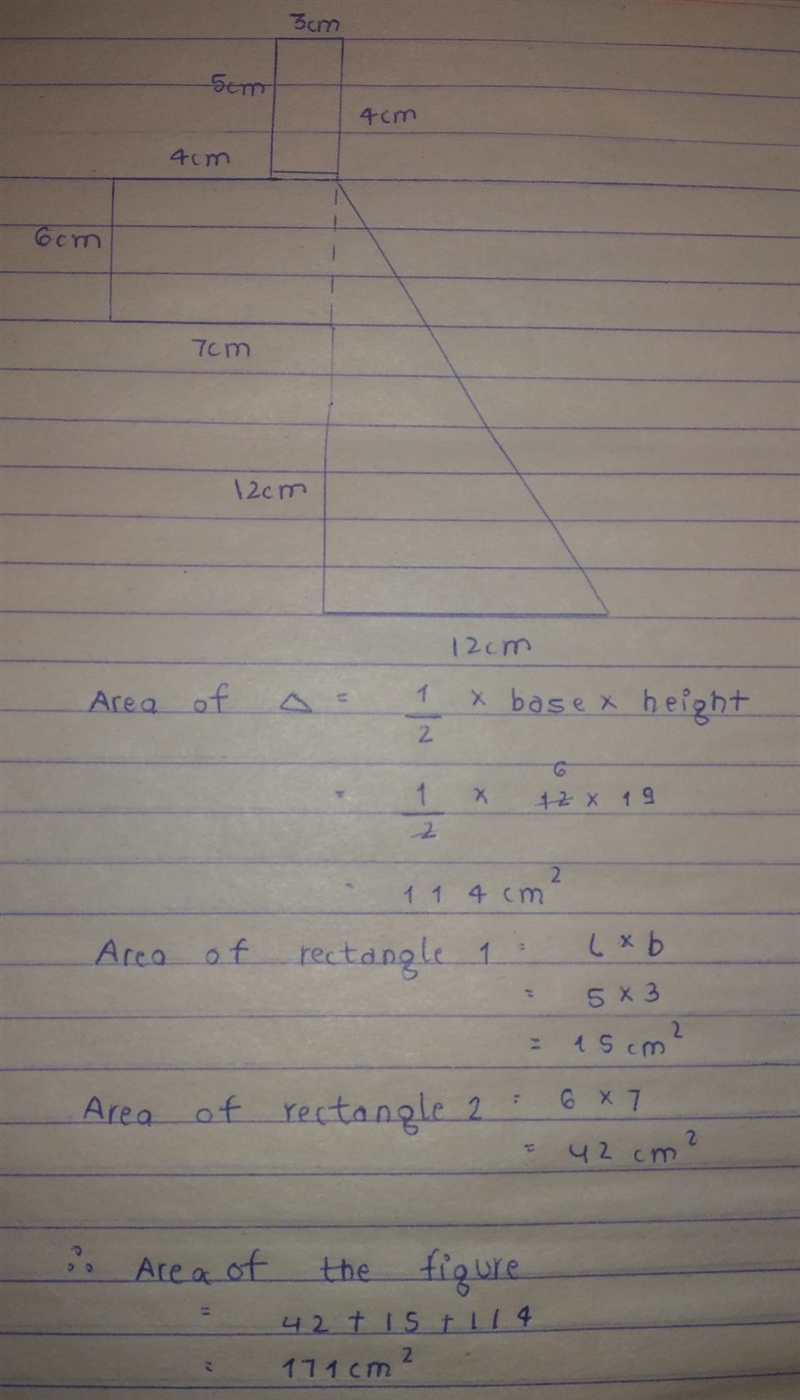 3cm
5cm
4cm
4cm
6cm
7cm
12cm
12cm
Area of △ = 1/2 × base × height
= 1/2 × 12 6 × 19
= 114 cm²
Area of rectangle 1 = l × b
= 5 × 3
= 15 cm²
Area of rectangle 2 = 6 × 7
= 42 cm²
∴ Area of the figure
= 42 + 15 + 114
= 171 cm²